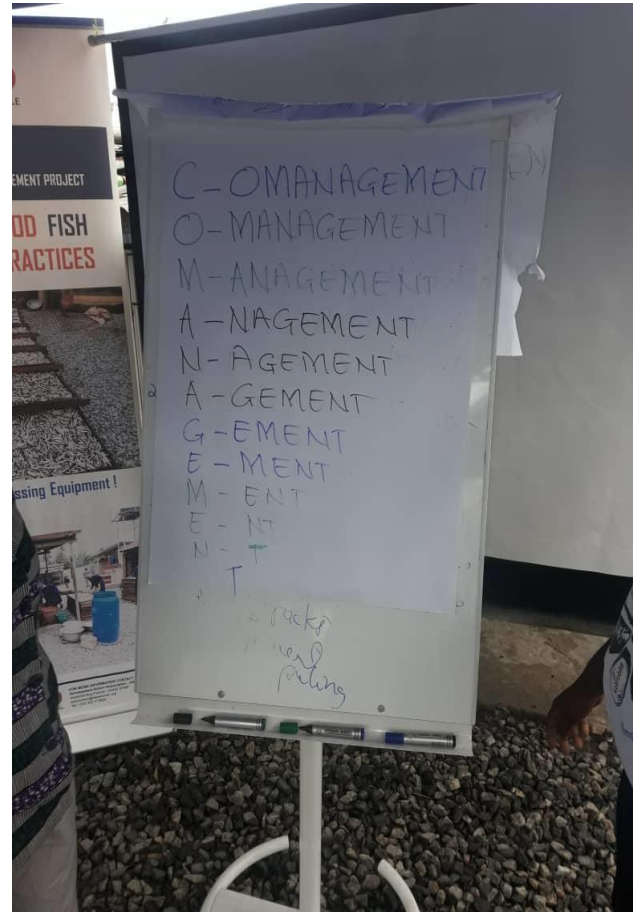 LE
EMENT PROJECT
OD FISH
RACTICES
ssing Equipment !
EN
C - OMANAGEMENT
O - MANAGEMENT
M - ANAGEMENT
A - NAGEMENT
N - AGEMENT
A - GEMENT
G - EMENT
E - MENT
M - ENT
E - NT
N - T
T